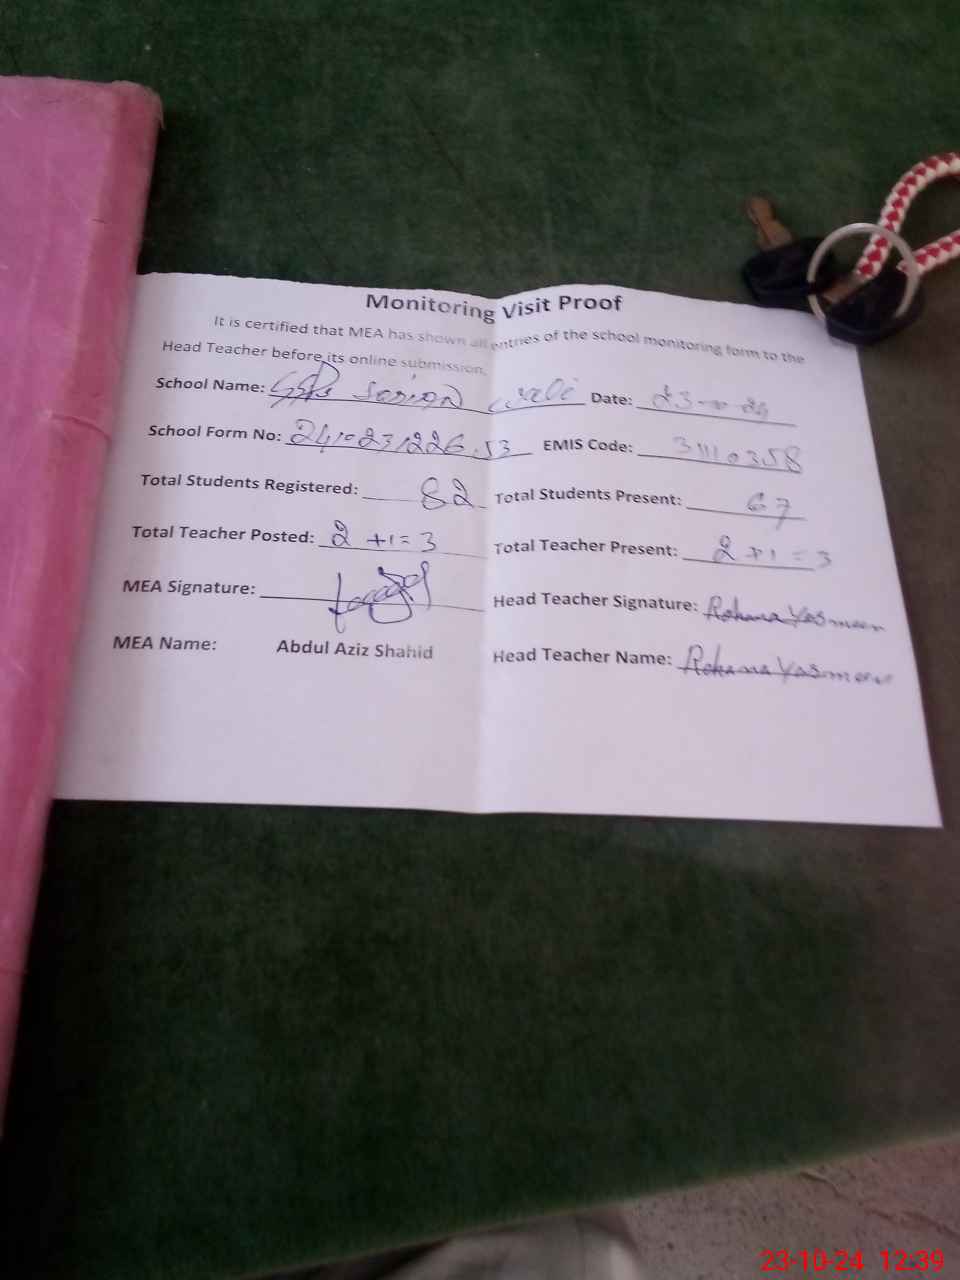 Monitoring Visit Proof
It is certified that MEA has shown all entries of the school monitoring form to the
Head Teacher before its online submission.
School Name: Date: 23-10-24
School Form No: EMIS Code: 31110358
Total Students Registered: 82 Total Students Present: 67
Total Teacher Posted: 2 +1= 3 Total Teacher Present: 2 +1 = 3
MEA Signature: Head Teacher Signature: Rohana Yasmeen
MEA Name: Abdul Aziz Shahid Head Teacher Name: Rohana Yasmeen
23-10-24 12:39